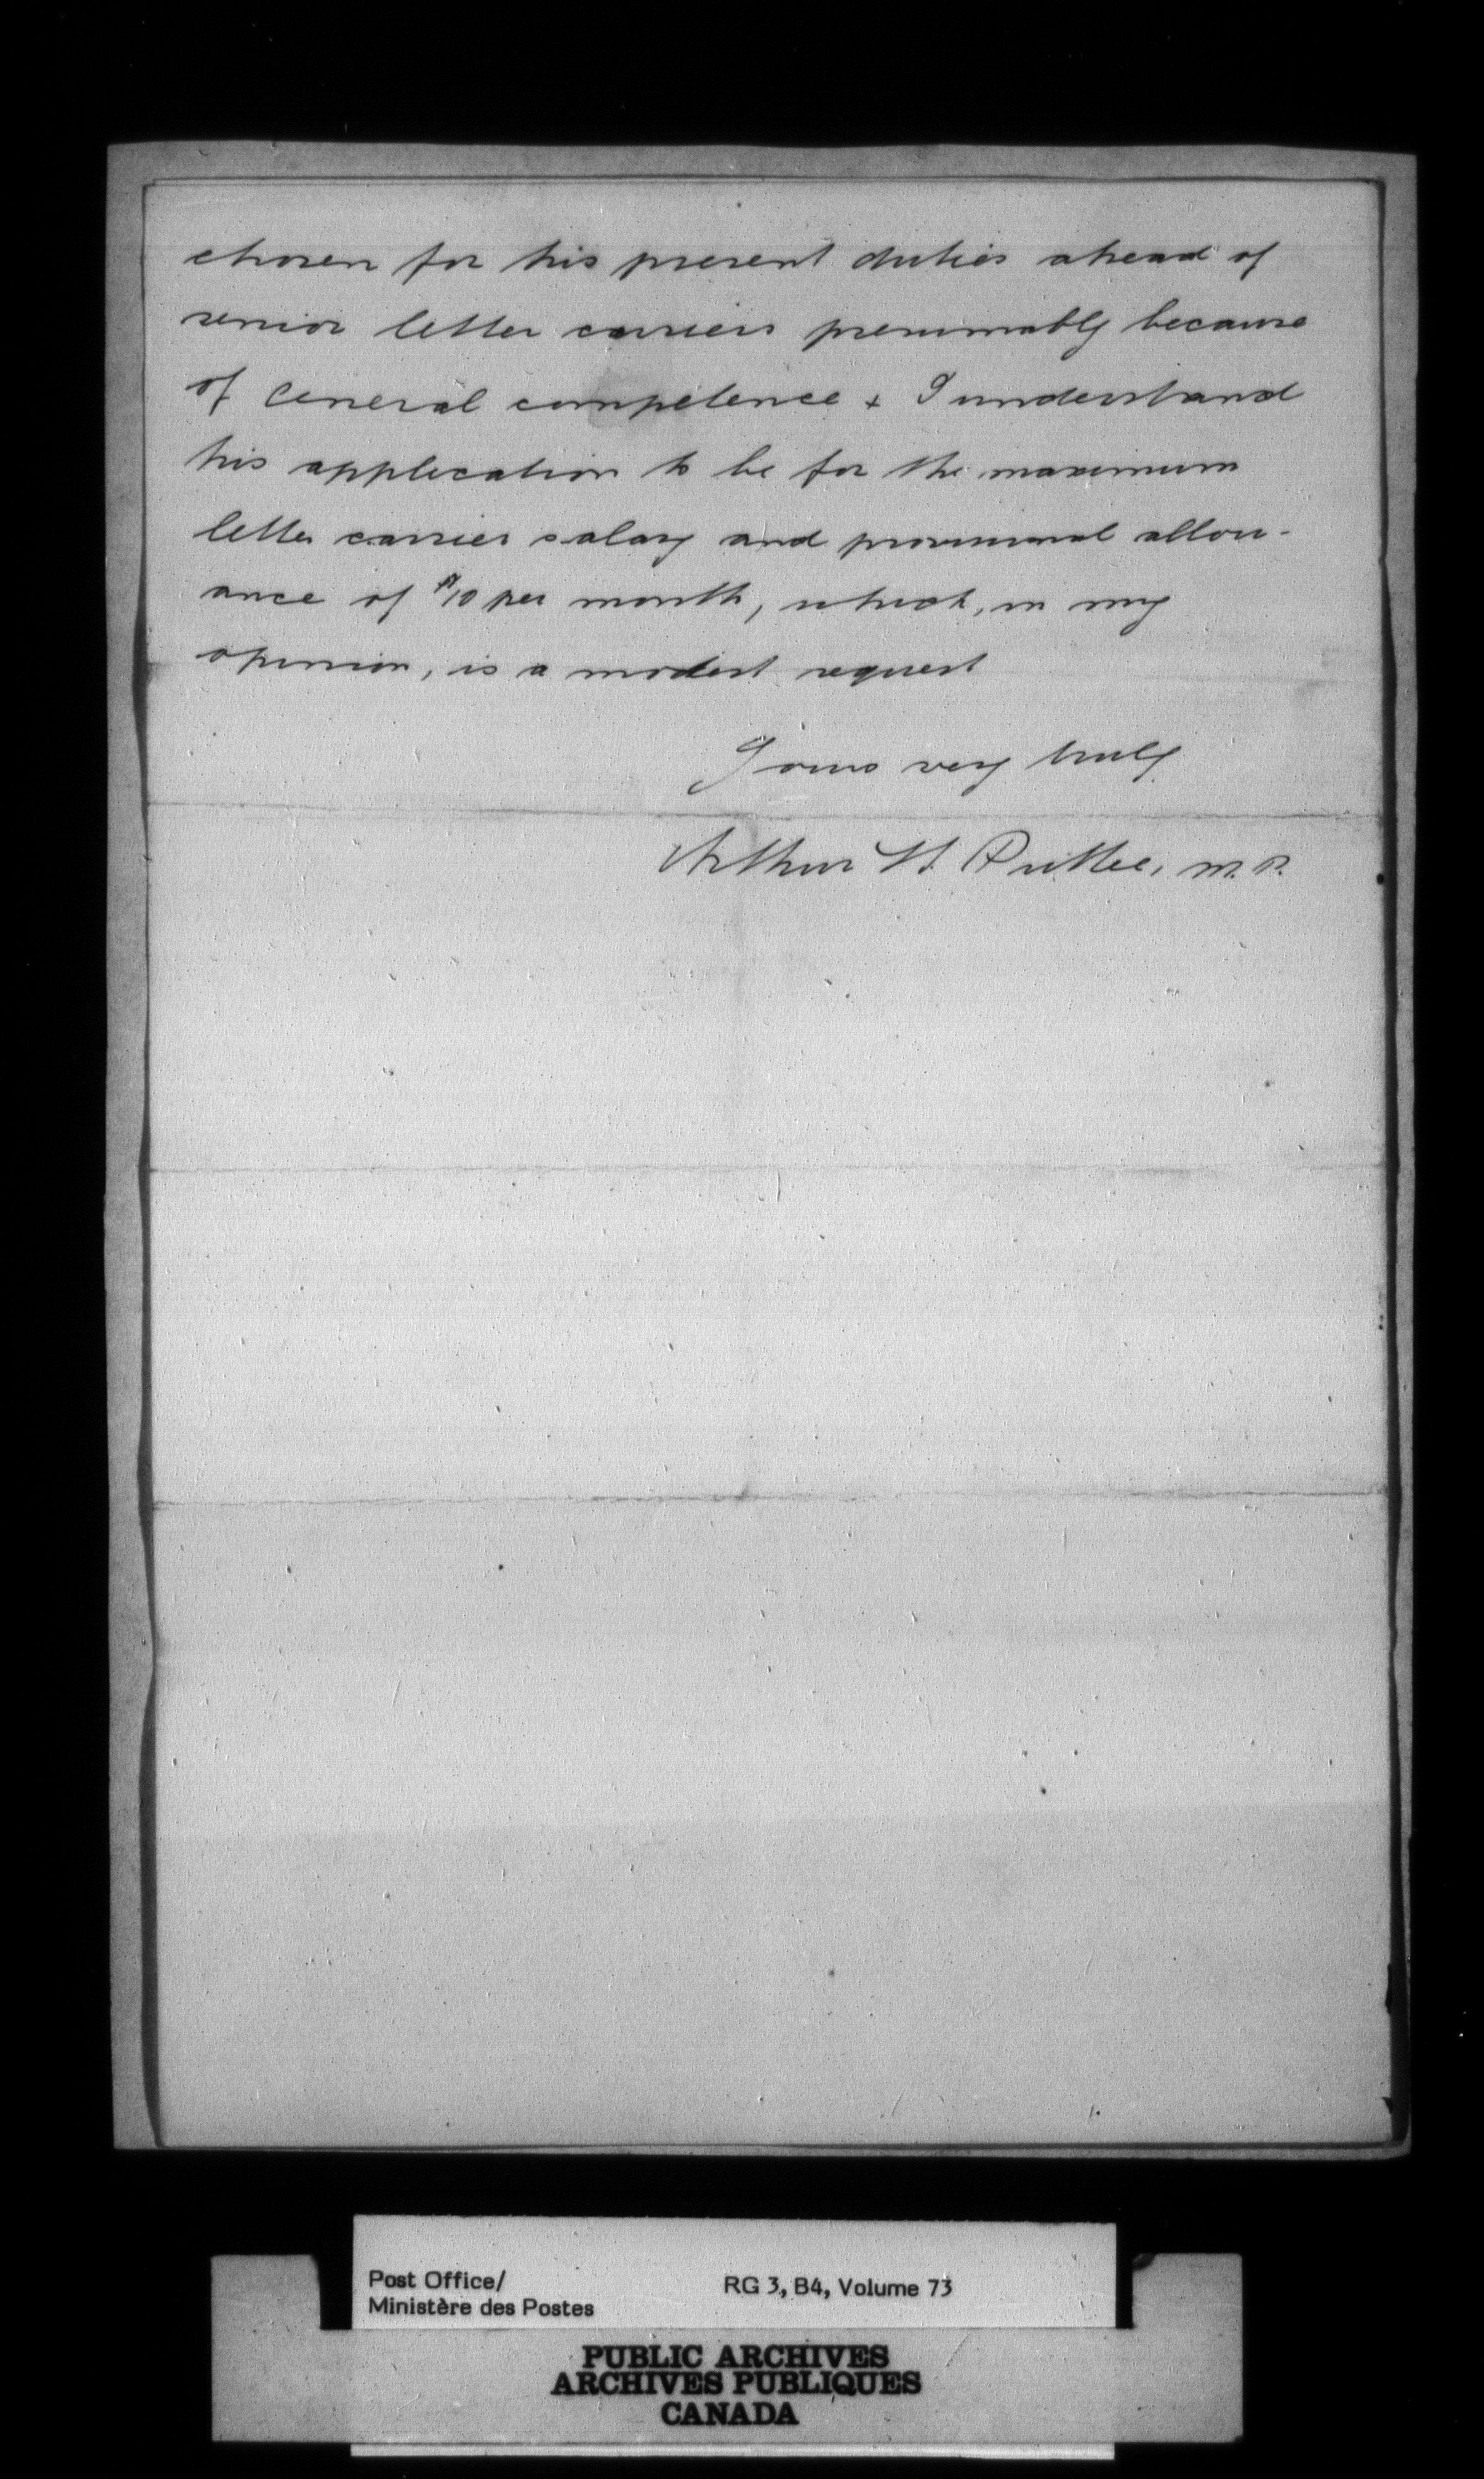 chosen for his present duties ahead of
senior letter carriers presumably because
of General competence + I understand
his application to be for the maximum
letter carrier salary and provisional allow-
ance of $10 per month, which, in my
opinion, is a modest request
Yours very truly
Arthur W. Puttee, M.P.
Post Office/
Ministère des Postes
RG 3, B4, Volume 73
PUBLIC ARCHIVES
ARCHIVES PUBLIQUES
CANADA